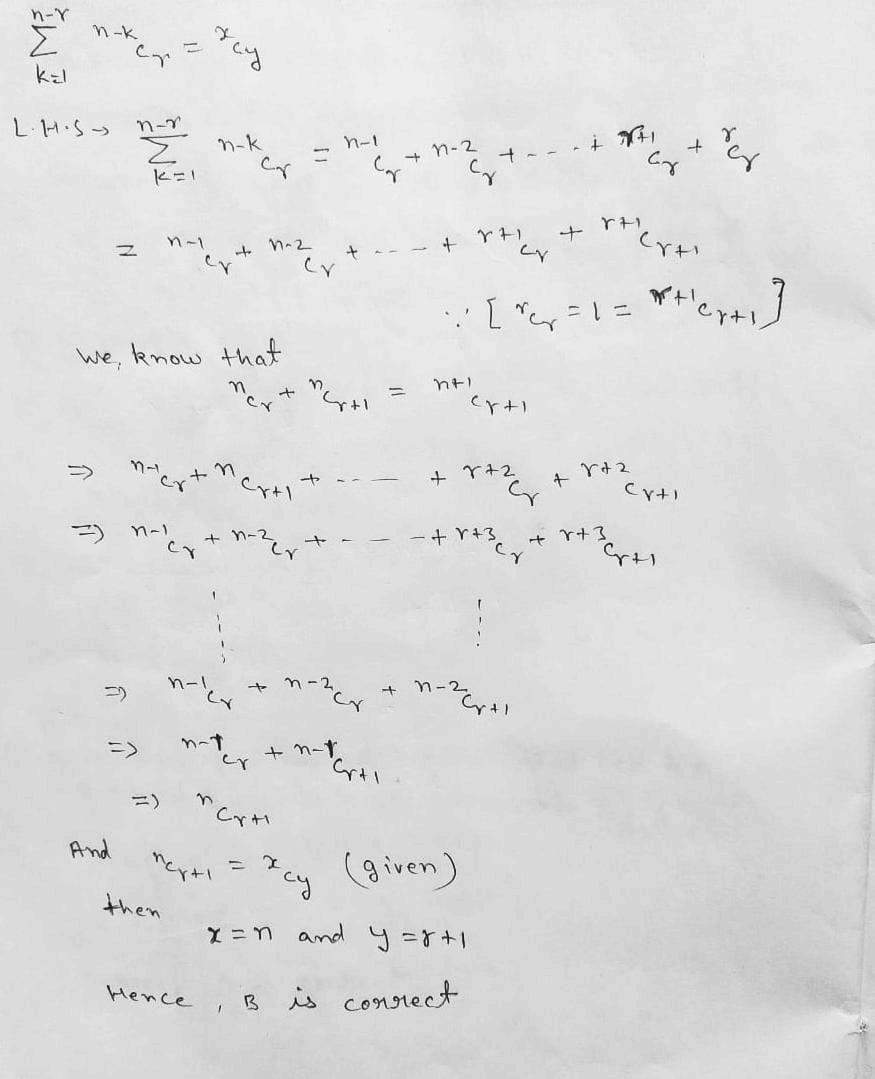 n-r
Σ n-k_C_r = x_C_y
k=1
L.H.S → n-r
Σ n-k_C_r = n-1_C_r + n-2_C_r + - - - . + r+1_C_r + r_C_r
K=1
= n-1_C_r + n-2_C_r + - - - + r+1_C_r + r+1_C_r+1
∵ [ r_C_r = 1 = r+1_C_r+1 ]
We, know that
n_C_r + n_C_r+1 = n+1_C_r+1
⇒ n-1_C_r + n_C_r+1 + - - - + r+2_C_r + r+2_C_r+1
⇒ n-1_C_r + n-2_C_r + - - - + r+3_C_r + r+3_C_r+1
⇒ n-1_C_r + n-2_C_r + n-2_C_r+1
⇒ n-1_C_r + n-1_C_r+1
⇒ n_C_r+1
And n_C_r+1 = x_C_y (given)
then
x = n and y = r+1
Hence, B is correct